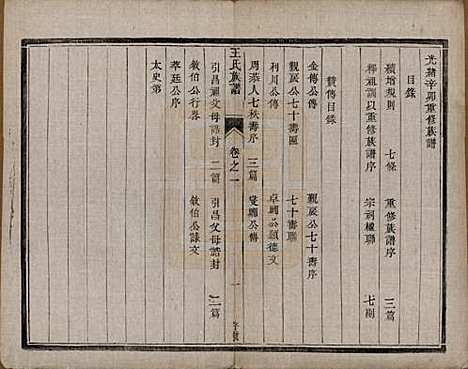 光緒辛卯重修族譜
目錄
續增規則 七條 重修族譜序 三篇
釋祖訓以重修族譜序 宗祠楹聯 七副
贊傳目錄
金傳公傳 覲辰公七十壽序
覲辰公七十壽匾 七十壽聯
利川公傳 卓卿公頌德文
周恭人七秩壽序 三篇 燮卿公傳
王氏族譜 卷之一 一
引昌祖父母誥封 二篇 引昌父母誥封 二篇
敘伯公行畧 敘伯公諫文
莘廷公序
太史第